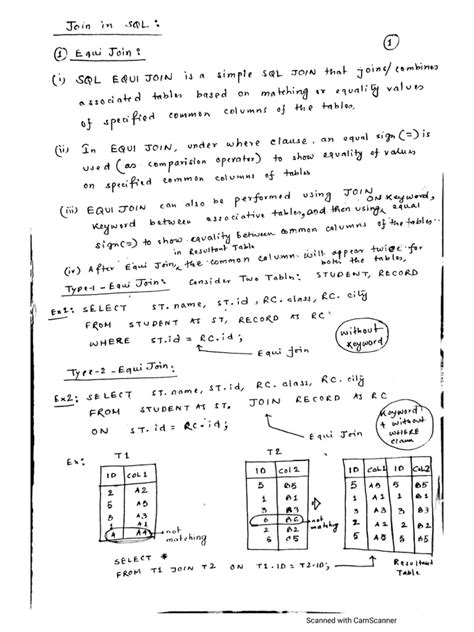 Join in SQL :
1
1 Equi Join :
(i) SQL EQUI JOIN is a simple SQL JOIN that joins/combines
associated tables based on matching or equality values
of specified common columns of the tables.
(ii) In EQUI JOIN, under where clause, an equal sign (=) is
used (as comparision operator) to show equality of values
on specified common columns of tables
(iii) EQUI JOIN can also be performed using JOIN
keyword between associative tables, and then using ON keyword, equal
sign(=) to show equality between common columns of the tables..
in Resultant Table
(iv) After Equi Join, the common column will appear twice for
both the tables,
Type-1 - Equi Join: Consider Two Table: STUDENT, RECORD
Ex1: SELECT ST.name, ST.id, RC.class, RC.city
FROM STUDENT AS ST, RECORD AS RC
WHERE ST.id = RC.id ;
Equi join
without
keyword
Type-2 - Equi Join:
Ex2: SELECT ST.name, ST.id, RC.class, RC.city
FROM STUDENT AS ST. JOIN RECORD AS RC
ON ST.id = RC.id ;
Equi Join
Keyword
+ without
WHERE
clause
Ex: T1 T2
ID COL1
2 A2
5 A5
3 A3
1 A1
4 A4
not
matching
ID COL2
5 B5
1 B1
3 B3
6 B6
2 B2
5 C5
not
matching
ID COL1 ID COL2
5 A5 5 B5
1 A1 1 B1
3 A3 3 B3
2 A2 2 B2
5 A5 5 C5
SELECT *
FROM T1 JOIN T2 ON T1.ID = T2.ID ;
Resultant
Table
Scanned with CamScanner